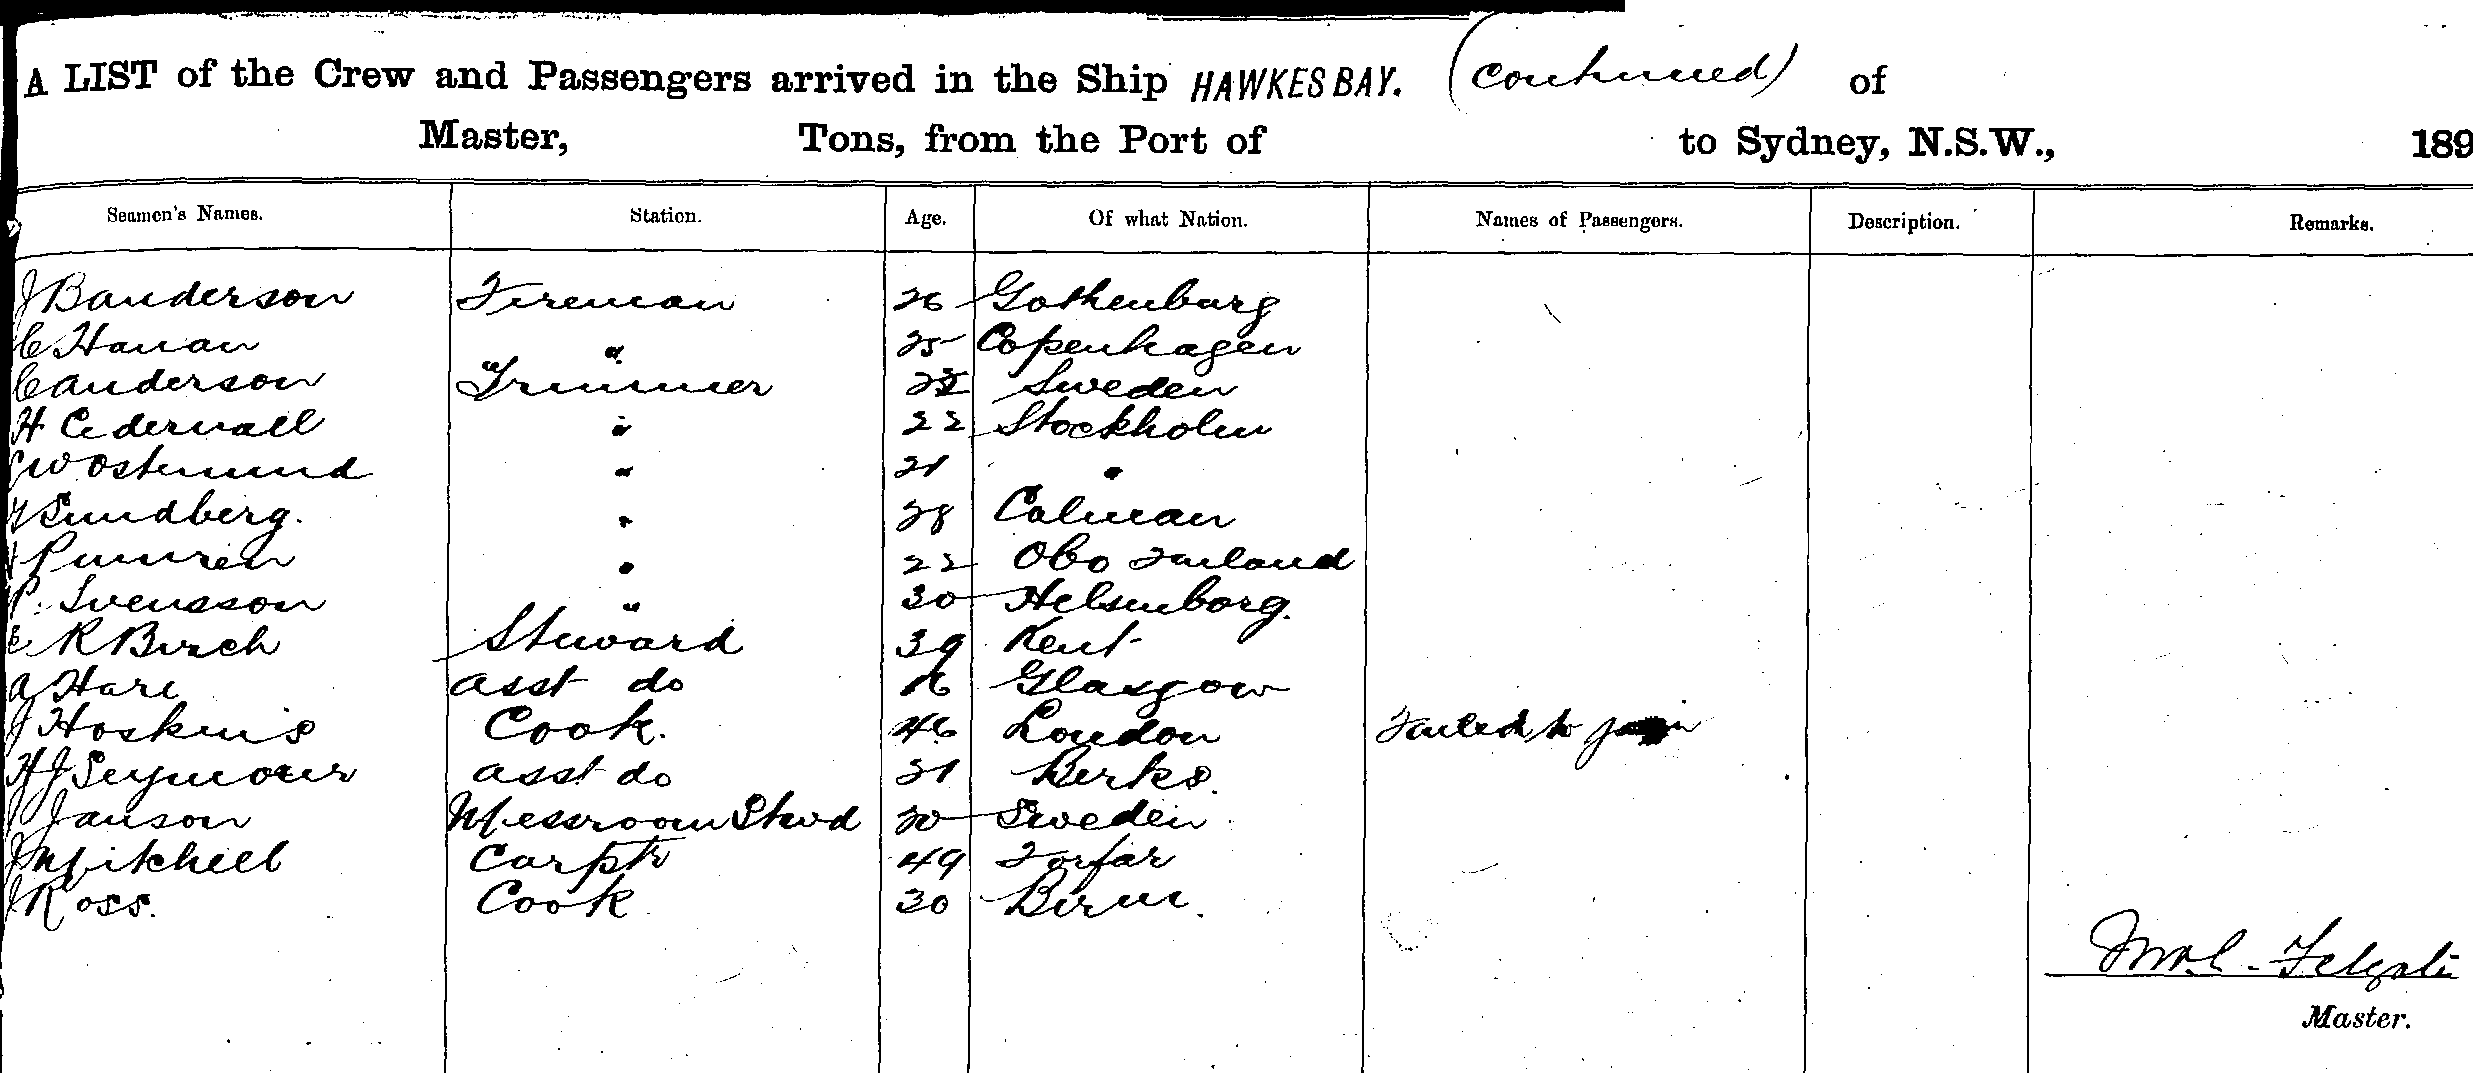 A LIST of the Crew and Passengers arrived in the Ship HAWKESBAY. (Continued) of
Master, Tons, from the Port of to Sydney, N.S.W., 189
Seamen's Names. Station. Age. Of what Nation. Names of Passengers. Description. Remarks.
J B anderson Fireman 26 Gothenburg
C Hanan " 25 Copenhagen
C anderson Trimmer Sweden
H Cedervall " 22 Stockholm
W Ostmund " 21 "
Sundberg. " 28 Calman
" 22 Obo Finland
P. Svensson " 30 Helsinborg.
R Birch Steward 39 Kent
A Hare asst do 16 Glasgow
J Hoskins Cook. 46 London Failed to join
H J Seymour asst do 21 Berks.
J Janson Messroom Stwd 20 Sweden
J Mitchell Carptr 49 Forfar
J Ross. Cook 30 Birm.
Master.